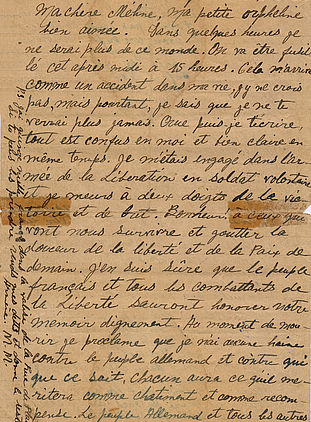 Ma chère Méline, Ma petite orpheline
bien aimée. Dans quelques heures je
ne serai plus de ce monde. On va être fusil
lé cet après midi à 15 heures. Cela m'arrive
comme un accident dans ma vie, j'y ne crois
pas, mais pourtant, je sais que je ne te
verrai plus jamais. Que puis-je t'écrire,
tout est confus en moi et bien claire en
même temps. Je m'étais engagé dans l'ar-
mée de la Libération en soldat volontaire
et je meurs à deux doigts de la vic-
toire et de but. Bonheur! à ceux qui
vont nous survivre et goutter la
douceur de la liberté et de la Paix de
demain. J'en suis sûre que le peuple
français et tous les combattants de
la Liberté sauront honorer notre
mémoir dignement. Au moment de mou-
rir je proclame que je n'ai aucune haine
contre le peuple allemand et contre qui
que ce soit, chacun aura ce qu'il mé-
ritera comme chatiment et comme recom
pense. Le peuple Allemand et tous les autres
M. M.